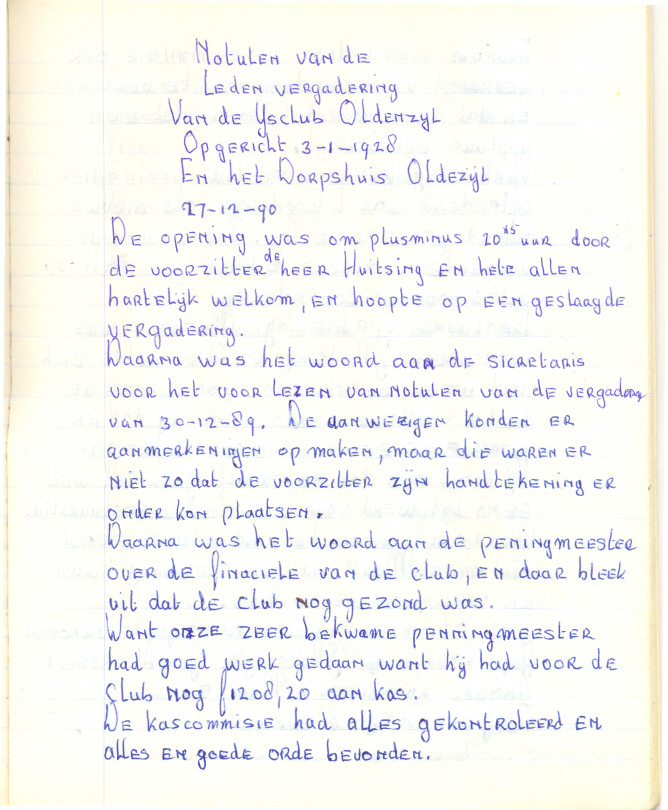 Notulen van de
Leden vergadering
Van de Ysclub Oldenzyl
Opgericht 3-1-1928
En het Dorpshuis Oldezÿl
27-12-90
De opening was om plusminus 20¹⁵ uur door
de voorzitter de heer Huitsing en hete allen
hartelÿk welkom, en hoopte op een geslaagde
vergadering.
Daarna was het woord aan de sicretaris
voor het voor lezen van notulen van de vergadering
van 30-12-89. De aanwezigen konden er
aanmerkeningen op maken, maar die waren er
niet zo dat de voorzitter zÿn handtekening er
onder kon plaatsen.
Daarna was het woord aan de peningmeester
over de finaciele van de club, en daar bleek
uit dat de club nog gezond was.
Want onze zeer bekwame penningmeester
had goed werk gedaan want hÿ had voor de
club nog f1208,20 aan kas.
De kascommisie had alles gekontroleerd en
alles en goede orde bevonden.